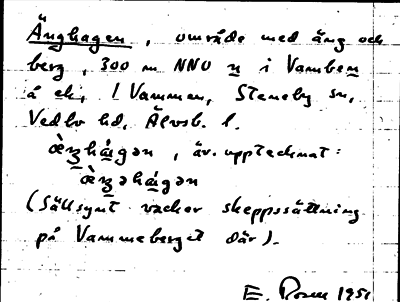 Änghagen, område med äng och
berg, 300 m NNO n i Vamben
å ek, / Vammen, Steneby sn,
Vedbo hd, Älvsb. l.
àŋhágən, äv. upptecknat:
àŋəhágən
(Sällsynt vacker skeppssättning
på Vammeberget där).
E. Rosen 1951